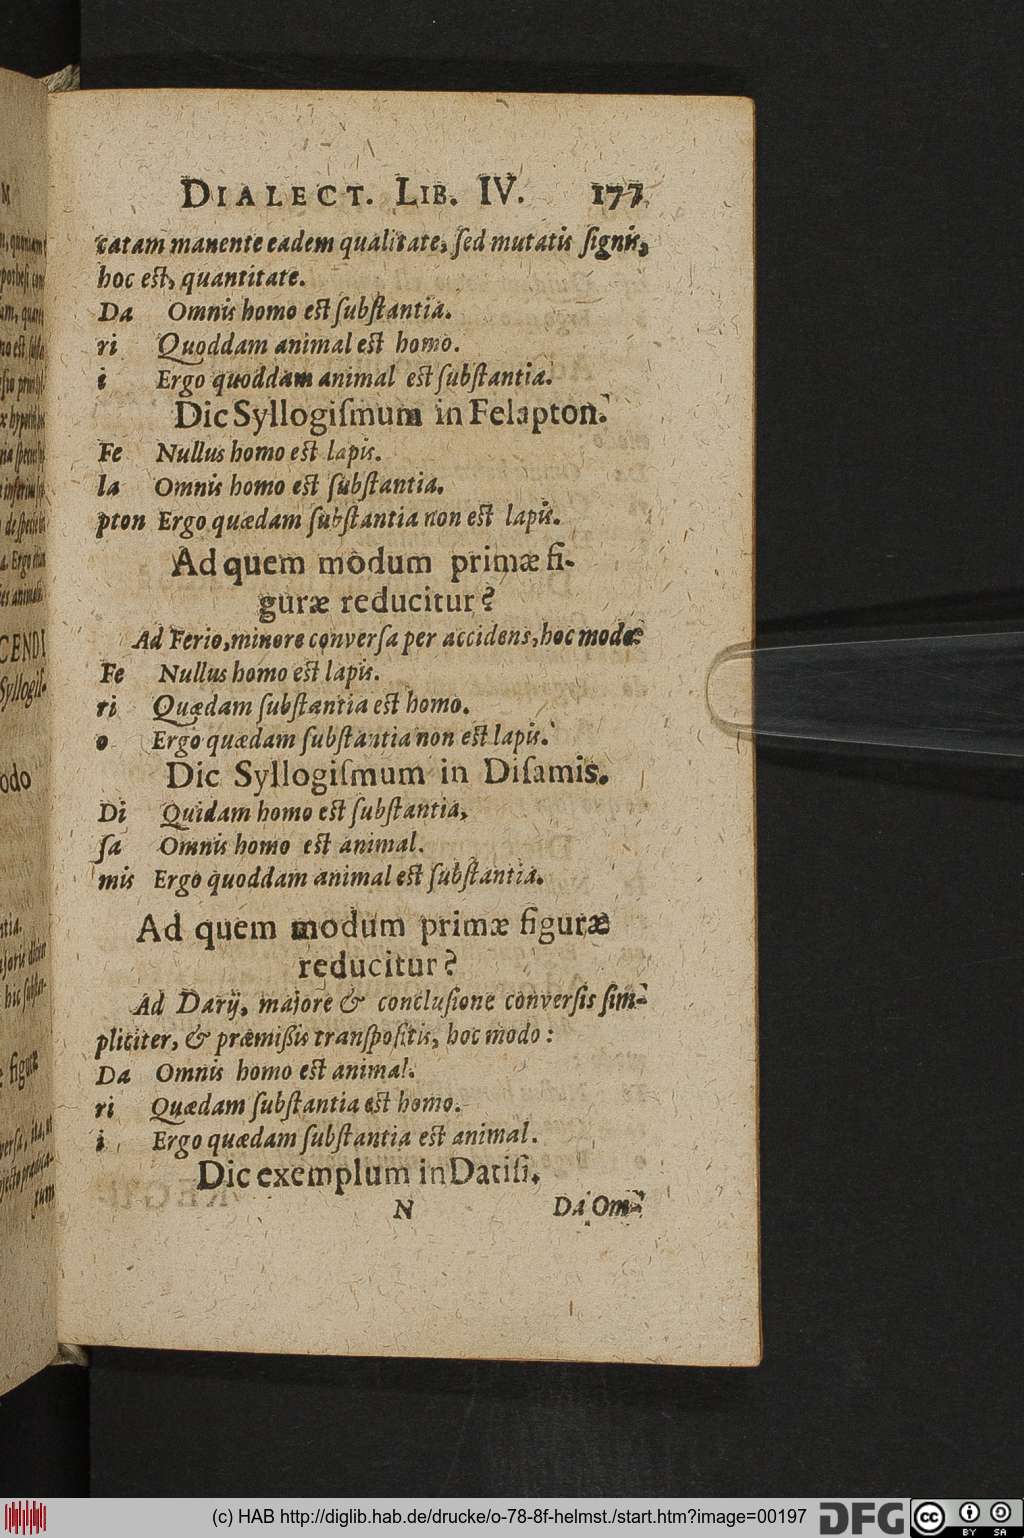 DIALECT. LIB. IV. 177
catam manente eadem qualitate, ſed mutatis ſignis,
hoc est, quantitate.
Da Omnis homo est ſubſtantia.
ri Quoddam animal est homo.
i Ergo quoddam animal est ſubſtantia.
Dic Syllogiſmum in Felapton.
Fe Nullus homo est lapis.
la Omnis homo est ſubſtantia.
pton Ergo quædam ſubſtantia non est lapis.
Ad quem modum primæ fi-
guræ reducitur?
Ad Ferio, minore converſa per accidens, hoc modo
Fe Nullus homo est lapis.
ri Quædam ſubſtantia est homo.
o Ergo quædam ſubſtantia non est lapis.
Dic Syllogiſmum in Diſamis.
Di Quidam homo est ſubſtantia,
ſa Omnis homo est animal.
mis Ergo quoddam animal est ſubſtantia.
Ad quem modum primæ figuræ
reducitur?
Ad Darij, majore & concluſione converſis ſim-
pliciter, & præmißis tranſpoſitis, hoc modo:
Da Omnis homo est animal.
ri Quædam ſubſtantia est homo.
i Ergo quædam ſubſtantia est animal.
Dic exemplum in Datiſi.
N Da Om-
(c) HAB http://diglib.hab.de/drucke/o-78-8f-helmst./start.htm?image=00197
DFG
cc BY SA